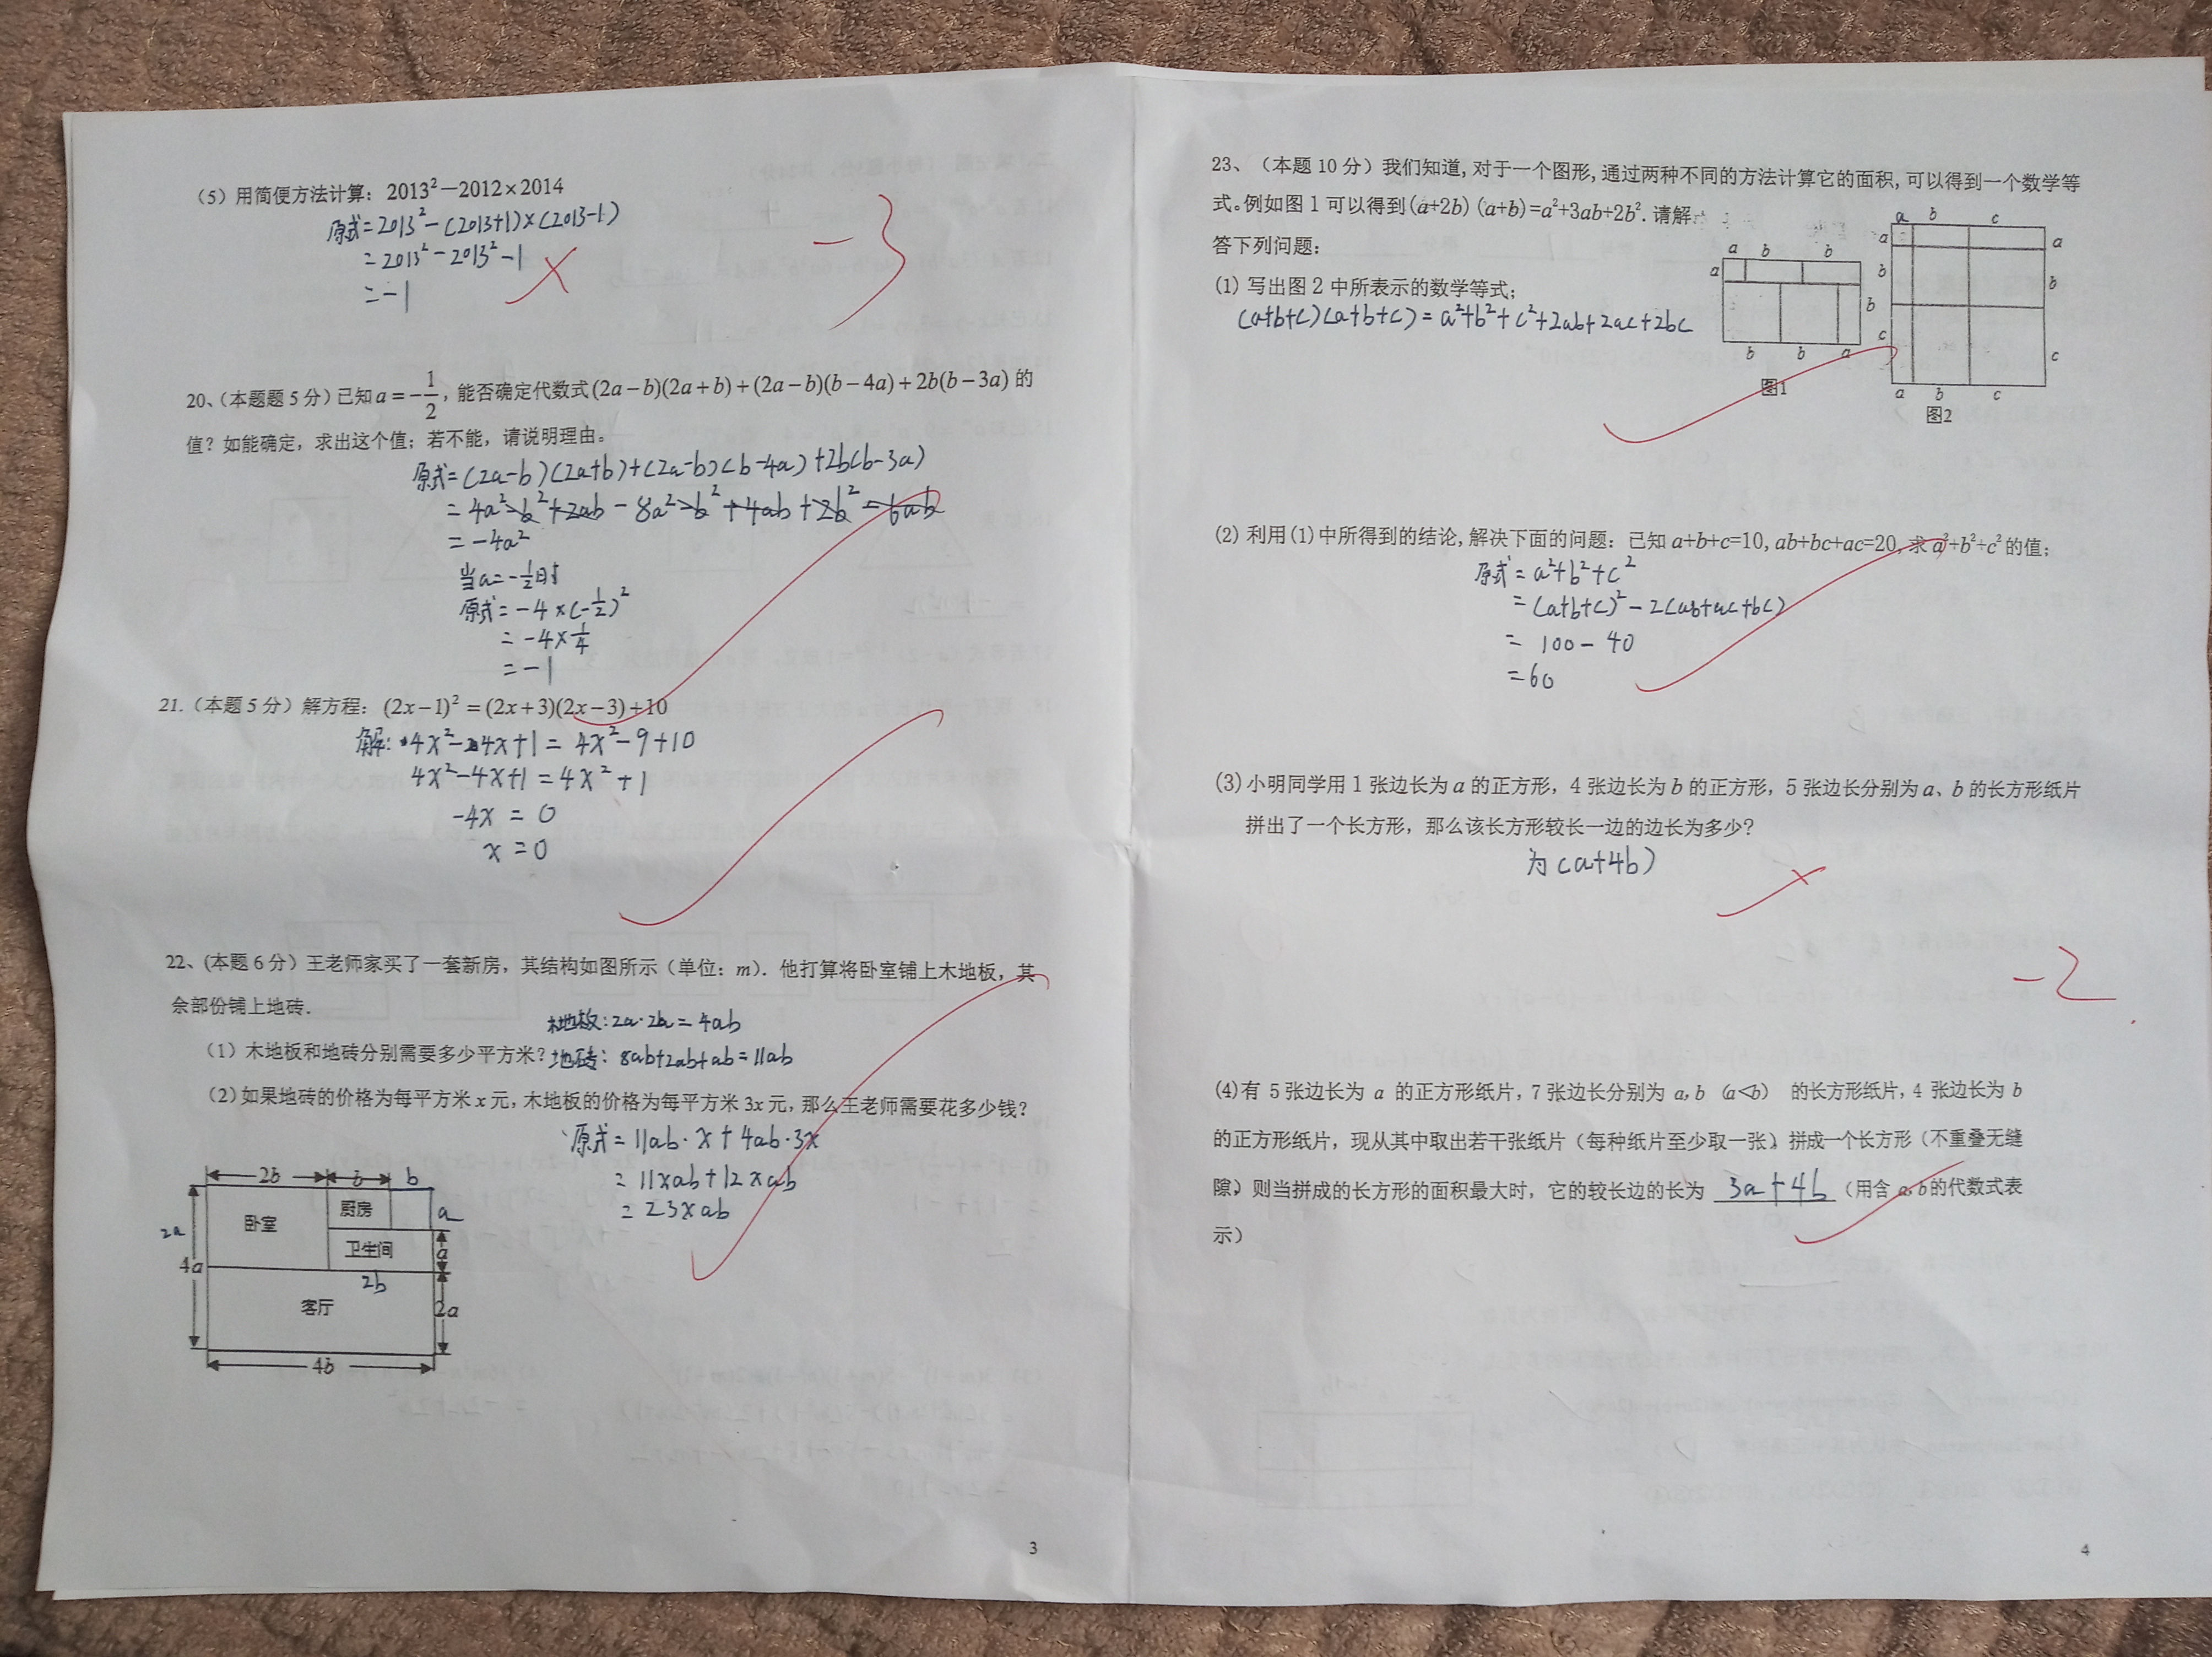 (5) 用简便方法计算: 2013²—2012×2014
原式=2013²-(2013+1)×(2013-1)
=2013²-2013²-1
=-1
-3
20、(本题题5分)已知a=-1/2, 能否确定代数式(2a-b)(2a+b)+(2a-b)(b-4a)+2b(b-3a)的
值? 如能确定, 求出这个值; 若不能, 请说明理由。
原式=(2a-b)(2a+b)+(2a-b)(b-4a)+2b(b-3a)
=4a²-b²+2ab-8a²-b²+4ab+2b²-6ab
=-4a²
当a=-1/2时
原式=-4×(-1/2)²
=-4×1/4
=-1
21.(本题5分)解方程: (2x-1)²=(2x+3)(2x-3)+10
解: 4x²-4x+1=4x²-9+10
4x²-4x+1=4x²+1
-4x=0
x=0
22、(本题6分)王老师家买了一套新房, 其结构如图所示(单位: m). 他打算将卧室铺上木地板, 其
余部份铺上地砖.
木地板:2a·2b=4ab
(1) 木地板和地砖分别需要多少平方米?
地砖: 8ab+2ab+ab=11ab
(2)如果地砖的价格为每平方米x元, 木地板的价格为每平方米3x元, 那么王老师需要花多少钱?
原式=11ab·x+4ab·3x
=11xab+12xab
=23xab
2b b b
卧室 厨房 a
2a
卫生间 a
4a
2b
客厅 2a
4b
3
23、(本题10分)我们知道, 对于一个图形, 通过两种不同的方法计算它的面积, 可以得到一个数学等
式。例如图1可以得到(a+2b)(a+b)=a²+3ab+2b². 请解
答下列问题:
(1) 写出图2中所表示的数学等式;
(a+b+c)(a+b+c)=a²+b²+c²+2ab+2ac+2bc
a b b
a
b
b b a
图1
a b c
a a
b b
c c
a b c
图2
(2) 利用(1)中所得到的结论, 解决下面的问题: 已知a+b+c=10, ab+bc+ac=20, 求a²+b²+c²的值;
原式=a²+b²+c²
=(a+b+c)²-2(ab+ac+bc)
=100-40
=60
(3) 小明同学用1张边长为a的正方形, 4张边长为b的正方形, 5张边长分别为a、b的长方形纸片
拼出了一个长方形, 那么该长方形较长一边的边长为多少?
为(a+4b)
-2
(4)有5张边长为a的正方形纸片, 7张边长分别为a,b (a<b) 的长方形纸片, 4张边长为b
的正方形纸片, 现从其中取出若干张纸片(每种纸片至少取一张), 拼成一个长方形(不重叠无缝
隙), 则当拼成的长方形的面积最大时, 它的较长边的长为 3a+4b (用含a,b的代数式表
示)
4